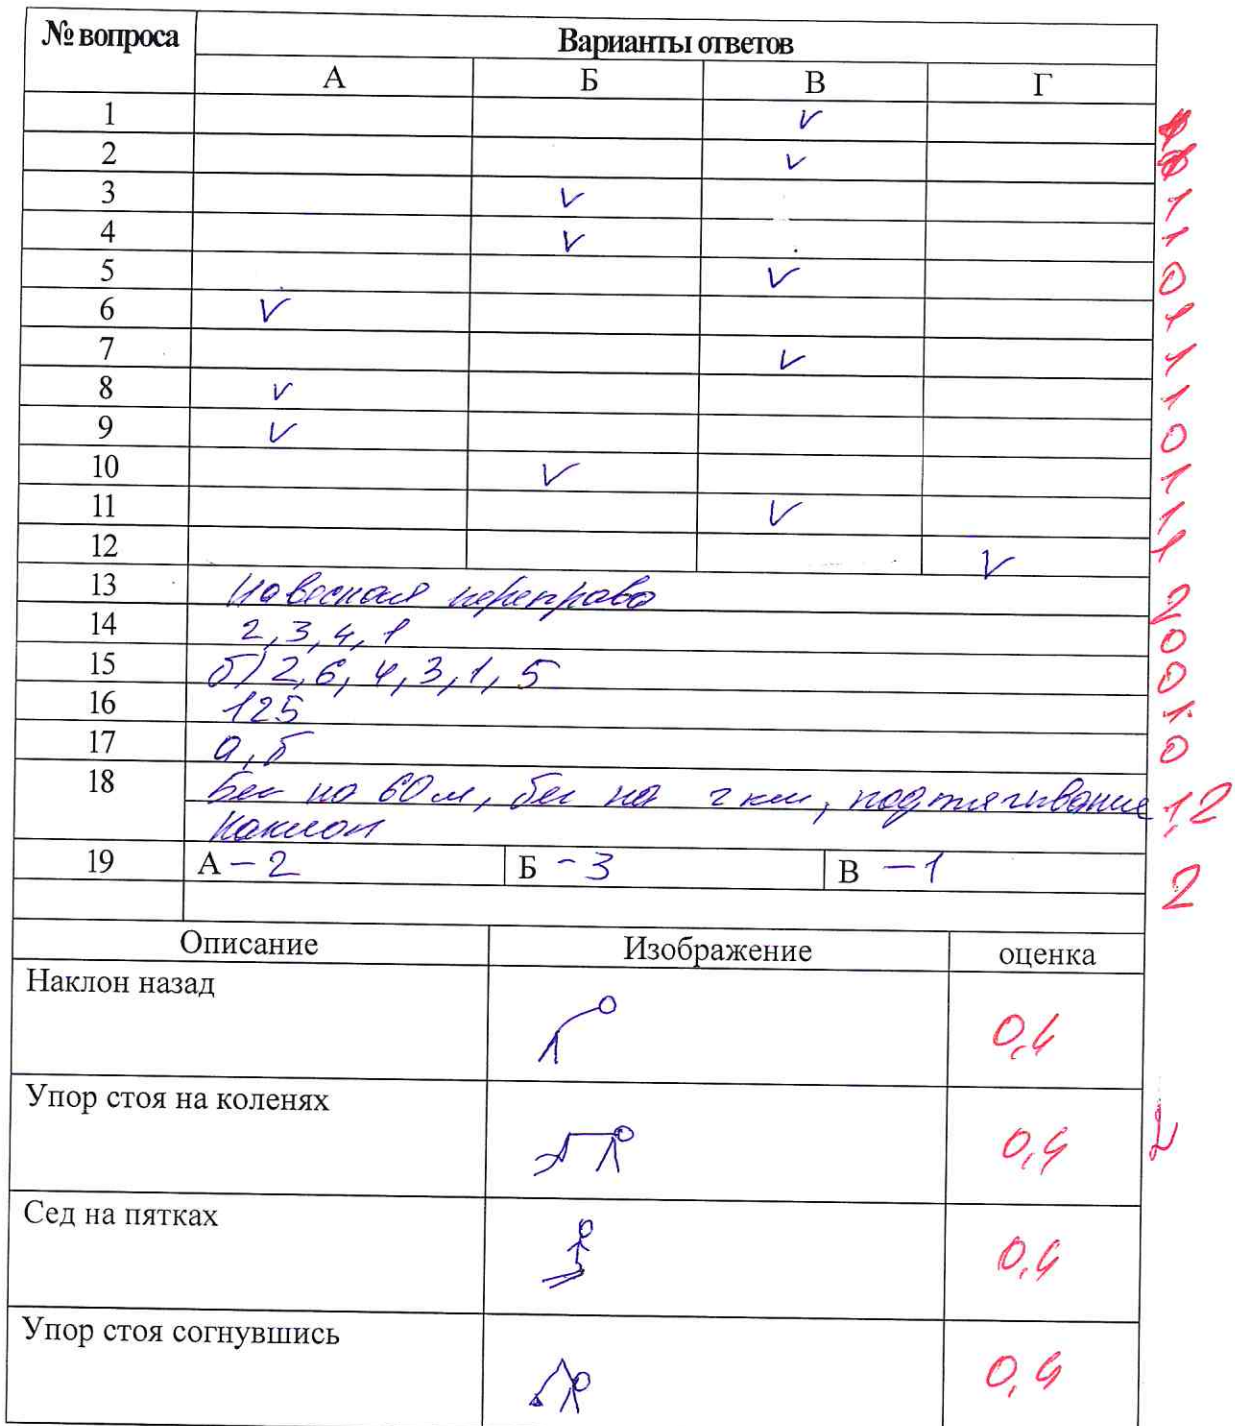 № вопроса Варианты ответов
А Б В Г
1 V
2 V
3 V 1
4 V 1
5 V 0
6 V 1
7 V 1
8 V 1
9 V 0
10 V 1
11 V 1
12 V 1
13 Навесная переправа 2
14 2, 3, 4, 1 0
15 б) 2, 6, 4, 3, 1, 5 0
16 125 1
17 а, б 0
18 Бег на 60 м, бег на 2 км, подтягивание 1,2
наклон
19 А – 2 Б – 3 В – 1 2
Описание Изображение оценка
Наклон назад 0,4
Упор стоя на коленях 0,4 2
Сед на пятках 0,4
Упор стоя согнувшись 0,4